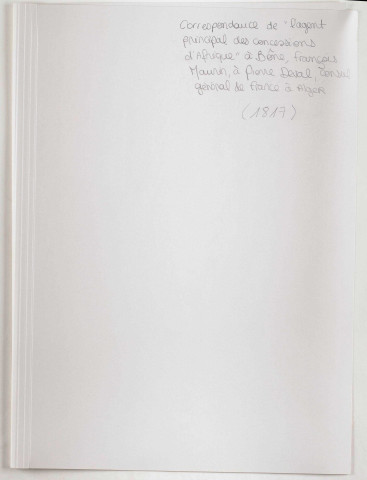 Correspondance de "l'agent
principal des concessions
d'Afrique" à Bône, François
Maurin, à Pierre Deval, Consul
général de France à Alger
(1817)